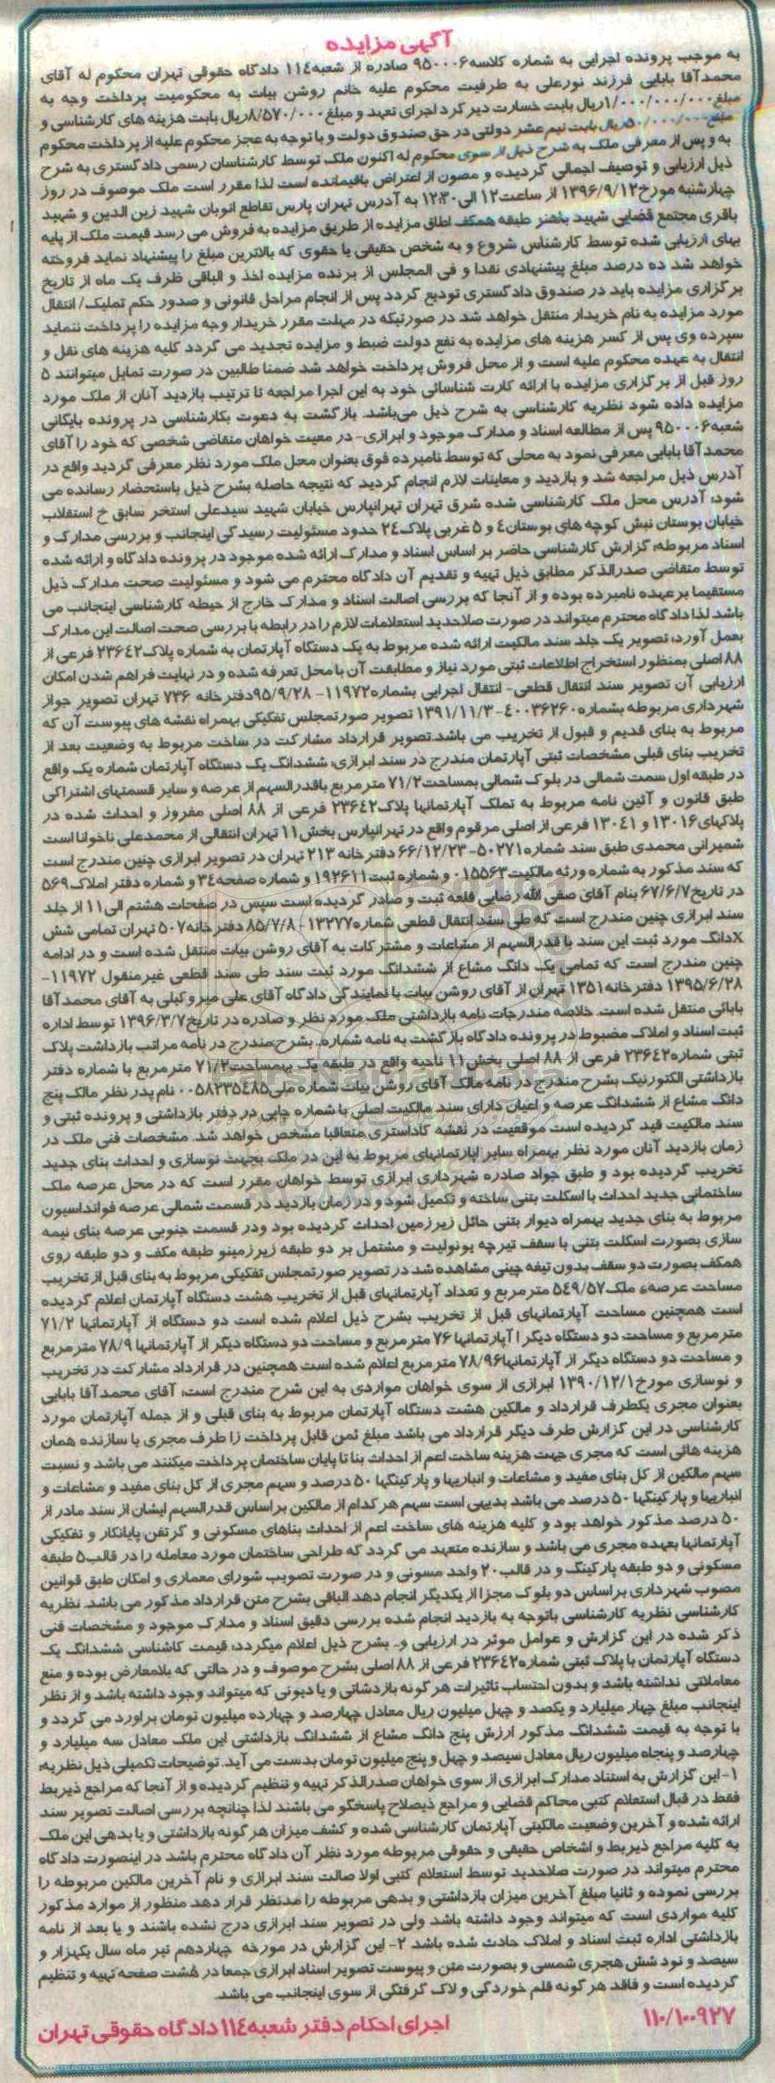 آگهی مزایده
به موجب پرونده اجرایی به شماره کلاسه۹۵۰۰۰۶ صادره از شعبه۱۱۴ دادگاه حقوقی تهران محکوم له آقای
محمدآقا بابایی فرزند نورعلی به طرفیت محکوم علیه خانم روشن بیات به محکومیت پرداخت وجه به
مبلغ۱/۰۰۰/۰۰۰/۰۰۰ریال بابت خسارت دیر کرد اجرای تعهد و مبلغ۸/۵۷۰/۰۰۰ریال بابت هزینه های کارشناسی و
مبلغ۵۰/۰۰۰/۰۰۰ریال بابت نیم عشر دولتی در حق صندوق دولت و با توجه به عجز محکوم علیه از پرداخت محکوم
به و پس از معرفی ملک به شرح ذیل از سوی محکوم له اکنون ملک توسط کارشناسان رسمی دادگستری به شرح
ذیل ارزیابی و توصیف اجمالی گردیده و مصون از اعتراض باقیمانده است لذا مقرر است ملک موصوف در روز
چهارشنبه مورخ۱۳۹۶/۹/۱۲ از ساعت۱۲ الی۱۲:۳۰ به آدرس تهران پارس تقاطع اتوبان شهید زین الدین و شهید
باقری مجتمع قضایی شهید باهنر طبقه همکف اطاق مزایده از طریق مزایده به فروش می رسد قیمت ملک از پایه
بهای ارزیابی شده توسط کارشناس شروع و به شخص حقیقی یا حقوی که بالاترین مبلغ را پیشنهاد نماید فروخته
خواهد شد ده درصد مبلغ پیشنهادی نقدا و فی المجلس از برنده مزایده اخذ و الباقی ظرف یک ماه از تاریخ
برگزاری مزایده باید در صندوق دادگستری تودیع گردد پس از انجام مراحل قانونی و صدور حکم تملیک/ انتقال
مورد مزایده به نام خریدار منتقل خواهد شد در صورتیکه در مهلت مقرر خریدار وجه مزایده را پرداخت ننماید
سپرده وی پس از کسر هزینه های مزایده به نفع دولت ضبط و مزایده تجدید می گردد کلیه هزینه های نقل و
انتقال به عهده محکوم علیه است و از محل فروش پرداخت خواهد شد ضمنا طالبین در صورت تمایل میتوانند ۵
روز قبل از برگزاری مزایده با ارائه کارت شناسائی خود به این اجرا مراجعه تا ترتیب بازدید آنان از ملک مورد
مزایده داده شود نظریه کارشناسی به شرح ذیل می‌باشد. بازگشت به دعوت بکارشناسی در پرونده بایگانی
شعبه۹۵۰۰۰۶ پس از مطالعه اسناد و مدارک موجود و ابرازی- در معیت خواهان متقاضی شخصی که خود را آقای
محمدآقا بابایی معرفی نمود به محلی که توسط نامبرده فوق بعنوان محل ملک مورد نظر معرفی گردید واقع در
آدرس ذیل مراجعه شد و بازدید و معاینات لازم انجام گردید که نتیجه حاصله بشرح ذیل باستحضار رسانده می
شود: آدرس محل ملک کارشناسی شده شرق تهران تهرانپارس خیابان شهید سیدعلی استخر سابق خ استقلاب
خیابان بوستان نبش کوچه های بوستان۴ و ۵ غربی پلاک۲۴ حدود مسئولیت رسیدگی اینجانب و بررسی مدارک و
اسناد مربوطه: گزارش کارشناسی حاضر بر اساس اسناد و مدارک ارائه شده موجود در پرونده دادگاه و ارائه شده
توسط متقاضی صدرالذکر مطابق ذیل تهیه و تقدیم آن دادگاه محترم می شود و مسئولیت صحت مدارک ذیل
مستقیما برعهده نامبرده بوده و از آنجا که بررسی اصالت اسناد و مدارک خارج از حیطه کارشناسی اینجانب می
باشد لذا دادگاه محترم میتواند در صورت صلاحدید استعلامات لازم را در رابطه با بررسی صحت اصالت این مدارک
بعمل آورد: تصویر یک جلد سند مالکیت ارائه شده مربوط به یک دستگاه آپارتمان به شماره پلاک۲۳۶۴۲ فرعی از
۸۸ اصلی بمنظور استخراج اطلاعات ثبتی مورد نیاز و مطابقت آن با محل تعرفه شده و در نهایت فراهم شدن امکان
ارزیابی آن تصویر سند انتقال قطعی- انتقال اجرایی بشماره۱۱۹۷۲- ۹۵/۹/۲۸دفترخانه ۷۳۶ تهران تصویر جواز
شهرداری مربوطه بشماره۴۰۰۳۶۲۶۰- ۱۳۹۱/۱۱/۳ تصویر صورتمجلس تفکیکی بهمراه نقشه های پیوست آن که
مربوط به بنای قدیم و قبول از تخریب می باشد.تصویر قرارداد مشارکت در ساخت مربوط به وضعیت بعد از
تخریب بنای قبلی مشخصات ثبتی آپارتمان مندرج در سند ابرازی: ششدانگ یک دستگاه آپارتمان شماره یک واقع
در طبقه اول سمت شمالی در بلوک شمالی بمساحت۷۱/۲ مترمربع باقدرالسهم از عرصه و سایر قسمتهای اشتراکی
طبق قانون و آئین نامه مربوط به تملک آپارتمانها پلاک۲۳۶۴۲ فرعی از ۸۸ اصلی مفروز و احداث شده در
پلاکهای۱۳۰۱۶ و ۱۳۰۴۱ فرعی از اصلی مرقوم واقع در تهرانپارس بخش۱۱ تهران انتقالی از محمدعلی ناخوانا است
شمیرانی محمدی طبق سند شماره۵۰۲۷۱- ۶۶/۱۲/۲۳ دفترخانه ۲۱۳ تهران در تصویر ابرازی چنین مندرج است
که سند مذکور به شماره ورثه مالکیت۰۱۵۵۶۳ و شماره ثبت۱۹۲۶۱۱ و شماره صفحه۳۴ و شماره دفتر املاک۵۶۹
در تاریخ۶۷/۶/۷ بنام آقای صفی الله رضایی قلعه ثبت و صادر گردیده است سپس در صفحات هشتم الی۱۱ از جلد
سند ابرازی چنین مندرج است که طی سند انتقال قطعی شماره۱۳۲۷۷- ۸۵/۷/۸ دفترخانه۵۰۷ تهران تمامی شش
Xدانگ مورد ثبت این سند با قدرالسهم از مشاعات و مشترکات به آقای روشن بیات منتقل شده است و در ادامه
چنین مندرج است که تمامی یک دانگ مشاع از ششدانگ مورد ثبت سند طی سند قطعی غیرمنقول ۱۱۹۷۲-
۱۳۹۵/۶/۲۸ دفترخانه۱۳۵۱ تهران از آقای روشن بیات با نمایندگی دادگاه آقای علی میروکیلی به آقای محمدآقا
بابائی منتقل شده است. خلاصه مندرجات نامه بازداشتی ملک مورد نظر و صادره در تاریخ۱۳۹۶/۳/۷ توسط اداره
ثبت اسناد و املاک مضبوط در پرونده دادگاه بازگشت به نامه شماره... بشرح مندرج در نامه مراتب بازداشت پلاک
ثبتی شماره۲۳۶۴۲ فرعی از ۸۸ اصلی بخش۱۱ ناحیه واقع در طبقه یک بهمساحت۷۱/۲ مترمربع با شماره دفتر
بازداشتی الکترونیک بشرح مندرج در نامه مالک آقای روشن بیات شماره ملی۰۰۵۸۲۳۵۴۸۵ نام پدر نظر مالک پنج
دانگ مشاع از ششدانگ عرصه و اعیان دارای سند مالکیت اصلی با شماره چاپی در دفتر بازداشتی و پرونده ثبتی و
سند مالکیت قید گردیده است موقعیت در نقشه کاداستری متعاقبا مشخص خواهد شد. مشخصات فنی ملک در
زمان بازدید آنان مورد نظر بهمراه سایر اپارتمانهای مربوط به این در ملک بجهت نوسازی و احداث بنای جدید
تخریب گردیده بود و طبق جواد صادره شهرداری ابرازی توسط خواهان مقرر است که در محل عرصه ملک
ساختمانی جدید احداث با اسکلت بتنی ساخته و تکمیل شود و در زمان بازدید در قسمت شمالی عرصه فوانداسیون
مربوط به بنای جدید بهمراه دیوار بتنی حائل زیرزمین احداث گردیده بود ودر قسمت جنوبی عرصه بنای نیمه
سازی بصورت اسکلت بتنی با سقف تیرچه یونولیت و مشتمل بر دو طبقه زیرزمینو طبقه مکف و دو طبقه روی
همکف بصورت دو سقف بدون تیغه چینی مشاهده شد در تصویر صورتمجلس تفکیکی مربوط به بنای قبل از تخریب
مساحت عرصهء ملک۵۴۹/۵۷ مترمربع و تعداد آپارتمانهای قبل از تخریب هشت دستگاه آپارتمان اعلام گردیده
است همچنین مساحت آپارتمانهای قبل از تخریب بشرح ذیل اعلام شده است دو دستگاه از آپارتمانها ۷۱/۲
مترمربع و مساحت دو دستگاه دیگر ا آپارتمانها ۷۶ مترمربع و مساحت دو دستگاه دیگر از آپارتمانها ۷۸/۹ مترمربع
و مساحت دو دستگاه دیگر از آپارتمانها۷۸/۹۶ مترمربع اعلام شده است همچنین در قرارداد مشارکت در تخریب
و نوسازی مورخ۱۳۹۰/۱۲/۱ ابرازی از سوی خواهان مواردی به این شرح مندرج است: آقای محمدآقا بابایی
بعنوان مجری یکطرف قرارداد و مالکین هشت دستگاه آپارتمان مربوط به بنای قبلی و از جمله آپارتمان مورد
کارشناسی در این گزارش طرف دیگر قرارداد می باشد مبلغ ثمن قابل پرداخت زا طرف مجری یا سازنده همان
هزینه هائی است که مجری جهت هزینه ساخت اعم از احداث بنا تا پایان ساختمان پرداخت میکنند می باشد و نسبت
سهم مالکین از کل بنای مفید و مشاعات و انباریها و پارکینگها ۵۰ درصد و سهم مجری از کل بنای مفید و مشاعات و
انباریها و پارکینگها ۵۰ درصد می باشد بدیهی است سهم هر کدام از مالکین براساس قدرالسهم ایشان از سند مادر از
۵۰ درصد مذکور خواهد بود و کلیه هزینه های ساخت اعم از احداث بناهای مسکونی و گرتفن پایانکار و تفکیکی
آپارتمانها بعهده مجری می باشد و سازنده متعهد می گردد که طراحی ساختمان مورد معامله را در قالب۵ طبقه
مسکونی و دو طبقه پارکینگ و در قالب۲۰ واحد مسونی و در صورت تصویب شورای معماری و امکان طبق قوانین
مصوب شهرداری براساس دو بلوک مجزا از یکدیگر انجام دهد الباقی بشرح متن قرارداد مذکور می باشد. نظریه
کارشناسی نظریه کارشناسی باتوجه به بازدید انجام شده بررسی دقیق اسناد و مدارک موجود و مشخصات فنی
ذکر شده در این گزارش و عوامل موثر در ارزیابی و.. بشرح ذیل اعلام میگردد: قیمت کاشناسی ششدانگ یک
دستگاه آپارتمان با پلاک ثبتی شماره۲۳۶۴۲ فرعی از ۸۸ اصلی بشرح موصوف و در حالتی که بلامعارض بوده و منع
معاملاتی نداشته باشد و بدون احتساب تاثیرات هر گونه بازدشاتی و یا دیونی که میتواند وجود داشته باشد و از نظر
اینجانب مبلغ چهار میلیارد و یکصد و چهل میلیون ریال معادل چهارصد و چهارده میلیون تومان براورد می گردد و
با توجه به قیمت ششدانگ مذکور ارزش پنج دانگ مشاع از ششدانگ بازداشتی این ملک معادل سه میلیارد و
چهارصد و پنجاه میلیون ریال معادل سیصد و چهل و پنج میلیون تومان بدست می آید. توضیحات تکمیلی ذیل نظریه:
۱- این گزارش به استناد مدارک ابرازی از سوی خواهان صدرالذکر تهیه و تنظیم گردیده و از آنجا که مراجع ذیربط
فقط در قبال استعلام کتبی محاکم قضایی و مراجع ذیصلاح پاسخگو می باشند لذا چنانچه بررسی اصالت تصویر سند
ارائه شده و آخرین وضعیت مالکیتی آپارتمان کارشناسی شده و کشف میزان هر گونه بازداشتی و یا بدهی این ملک
به کلیه مراجع ذیربط و اشخاص حقیقی و حقوقی مربوطه مورد نظر آن دادگاه محترم باشد در اینصورت دادگاه
محترم میتواند در صورت صلاحدید توسط استعلام کتبی اولا صالت سند ابرازی و نام آخرین مالکین مربوطه را
بررسی نموده و ثانیا مبلغ آخرین میزان بازداشتی و بدهی مربوطه را مدنظر قرار دهد منظور از موارد مذکور
کلیه مواردی است که میتواند وجود داشته باشد ولی در تصویر سند ابرازی درج نشده باشند و یا بعد از نامه
بازداشتی اداره ثبت اسناد و املاک حادث شده باشد ۲- این گزارش در مورخه چهاردهم تیر ماه سال یکهزار و
سیصد و نود شش هجری شمسی و بصورت متن و پیوست تصویر اسناد ابرازی جمعا در هشت صفحه تهیه و تنظیم
گردیده است و فاقد هر گونه قلم خوردگی و لاک گرفتگی از سوی اینجانب می باشد.
۱۱۰/۱۰۰۹۲۷
اجرای احکام دفتر شعبه ۱۱۴ دادگاه حقوقی تهران